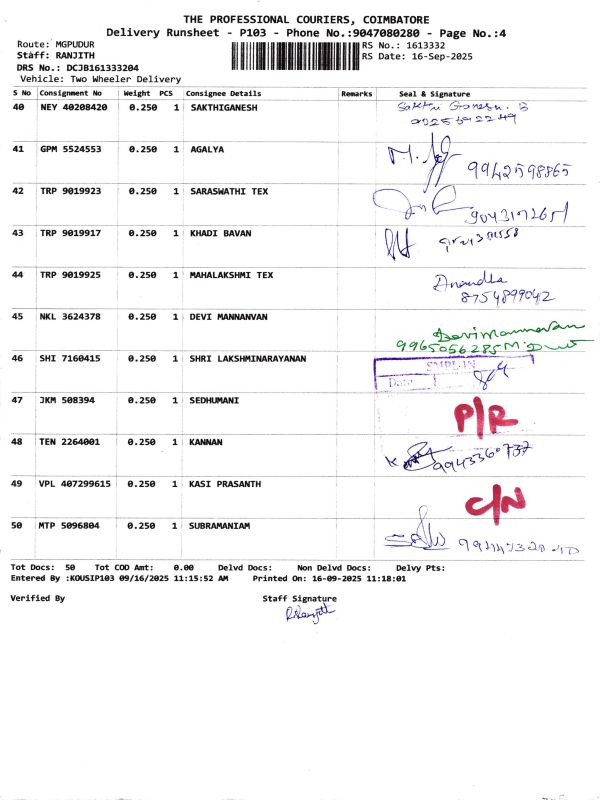 THE PROFESSIONAL COURIERS, COIMBATORE
Delivery Runsheet - P103 - Phone No.:9047080280 - Page No.:4
Route: MGPUDUR RS No.: 1613332
Staff: RANJITH RS Date: 16-Sep-2025
DRS No.: DCJB161333204
Vehicle: Two Wheeler Delivery
S No Consignment No Weight PCS Consignee Details Remarks Seal & Signature
40 NEY 40208420 0.250 1 SAKTHIGANESH Sakthi Ganesh. B
41 GPM 5524553 0.250 1 AGALYA 9942598865
42 TRP 9019923 0.250 1 SARASWATHI TEX
43 TRP 9019917 0.250 1 KHADI BAVAN
44 TRP 9019925 0.250 1 MAHALAKSHMI TEX
8754899042
45 NKL 3624378 0.250 1 DEVI MANNANVAN
9965056285
46 SHI 7160415 0.250 1 SHRI LAKSHMINARAYANAN
Date
47 JKM 508394 0.250 1 SEDHUMANI P/R
48 TEN 2264001 0.250 1 KANNAN 9943360737
49 VPL 407299615 0.250 1 KASI PRASANTH C/N
50 MTP 5096804 0.250 1 SUBRAMANIAM
Tot Docs: 50 Tot COD Amt: 0.00 Delvd Docs: Non Delvd Docs: Delvy Pts:
Entered By :KOUSIP103 09/16/2025 11:15:52 AM Printed On: 16-09-2025 11:18:01
Verified By Staff Signature